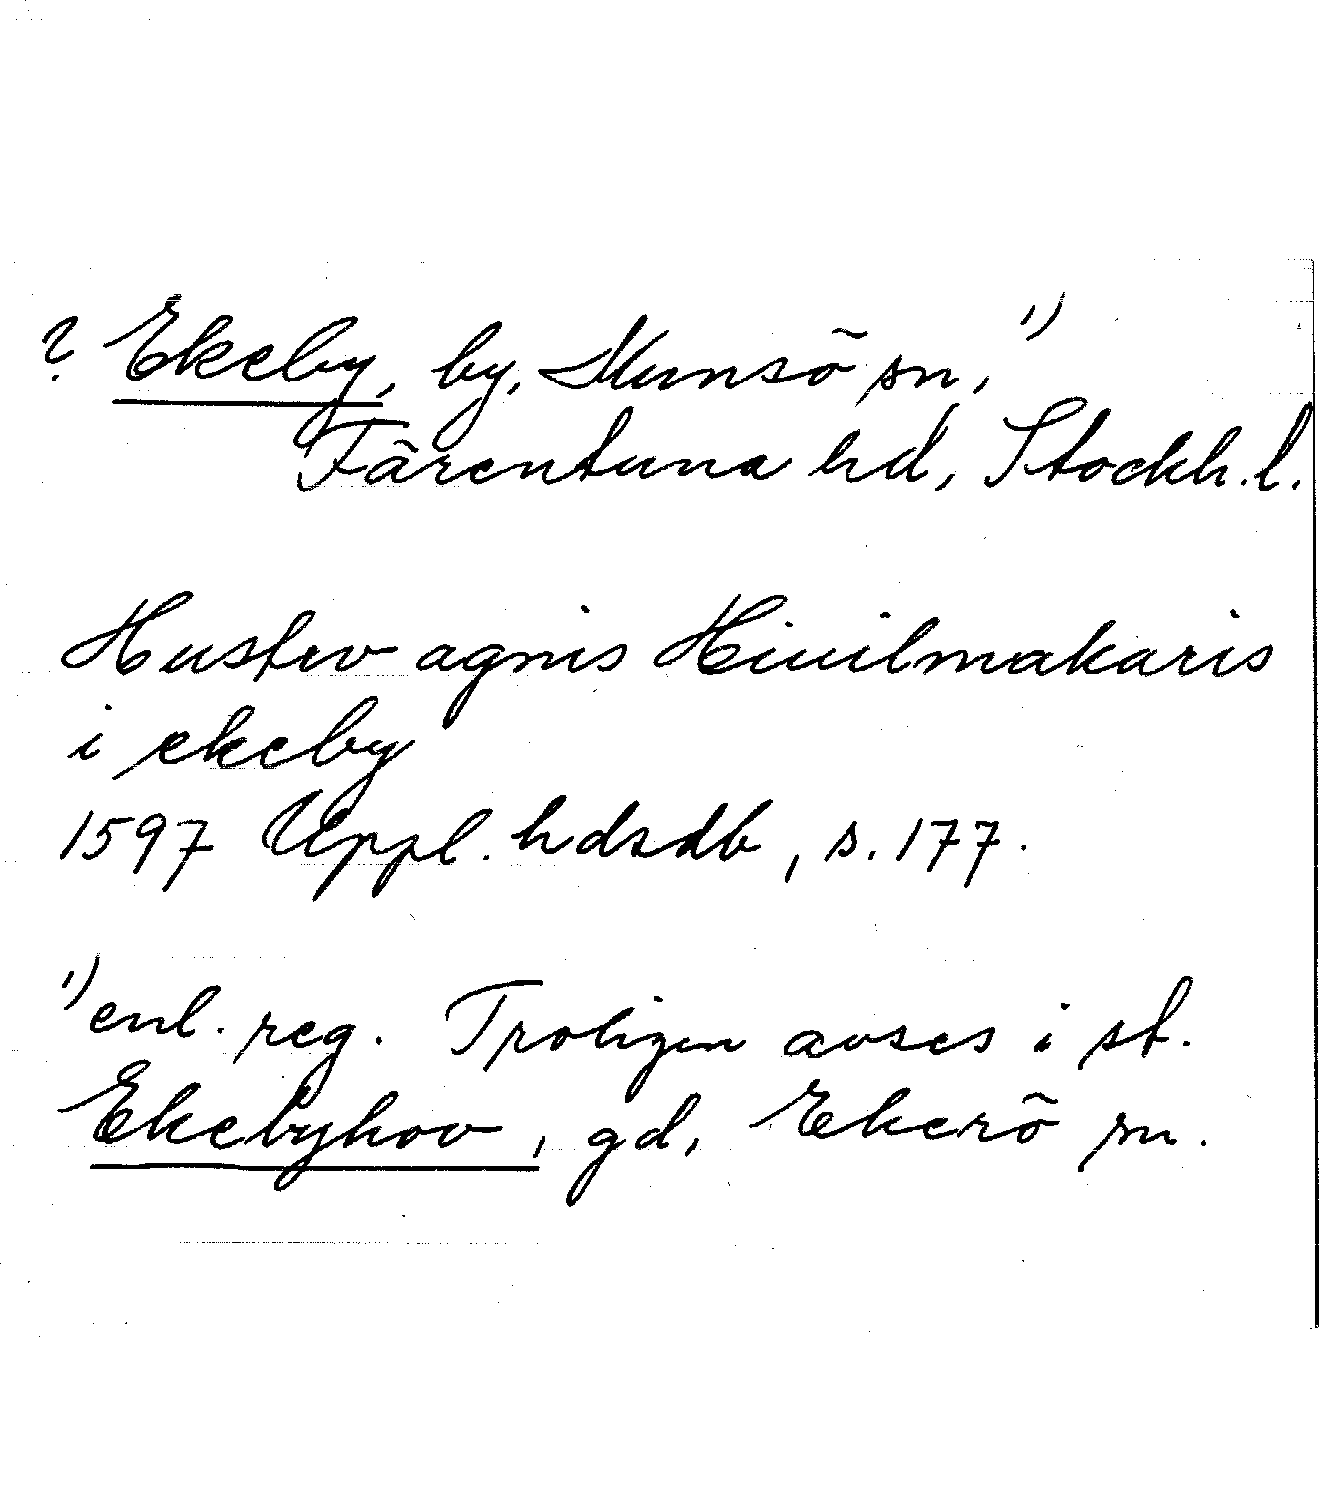 ? Ekeby, by, Munsö sn, 1)
Färentuna hd, Stockh.l.
Hustrv agnis Hiuilmakaris
i ekeby
1597 Uppl. hdsdb, s. 177.
1) enl. reg. Troligen avses i st.
Ekebyhov, gd, Ekerö sn.